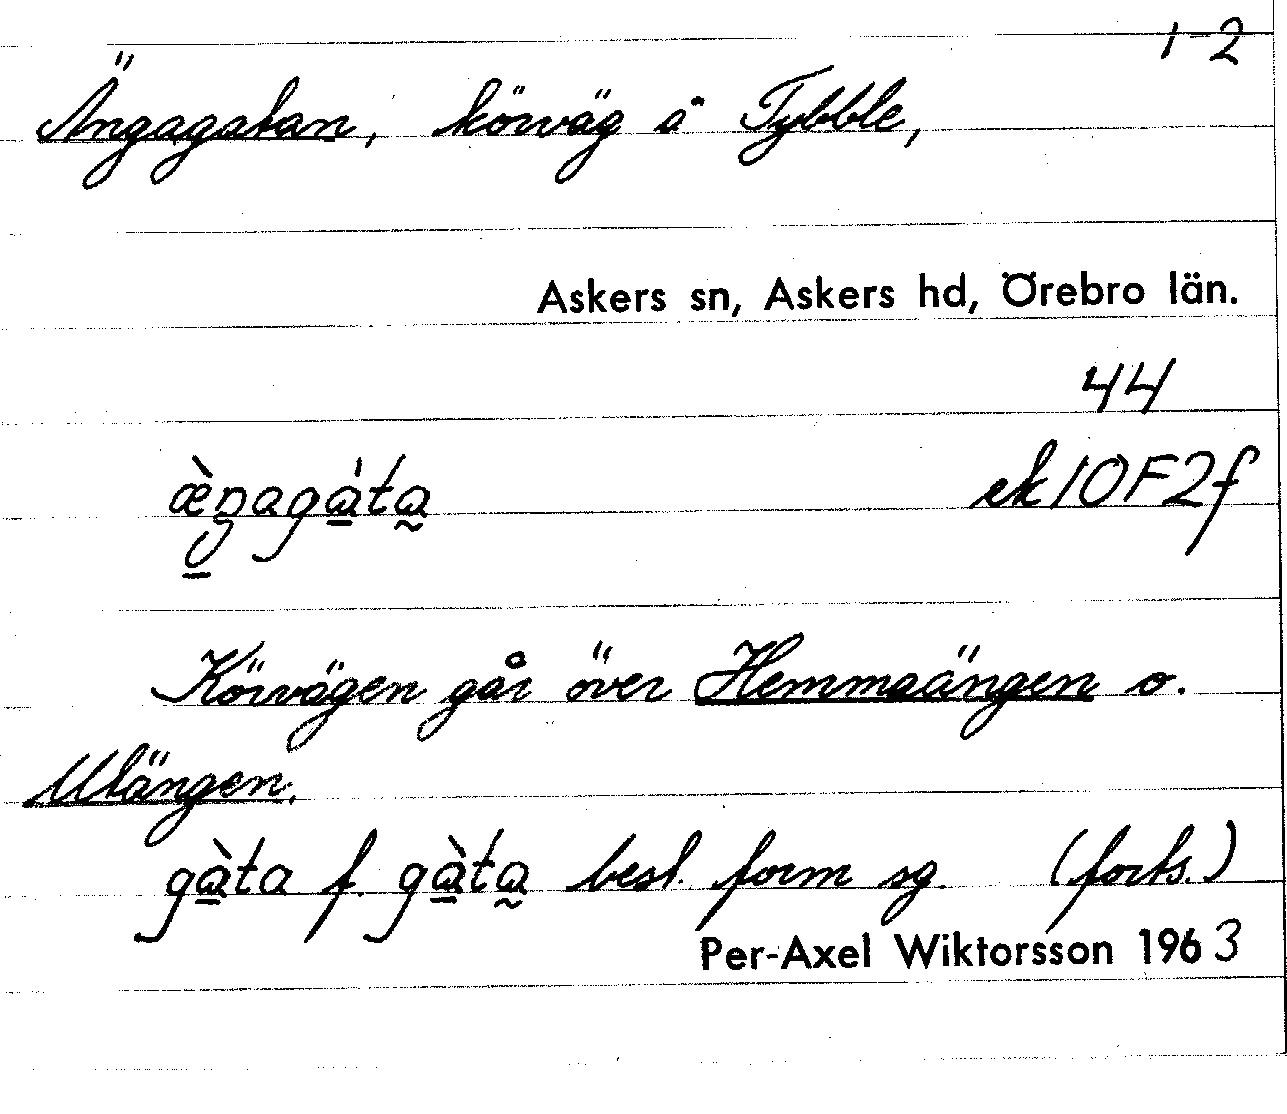 1-2
Ängagatan, körväg å Tybble,
Askers sn, Askers hd, Örebro län.
44
æ̀ŋagáta̰ ek 10F2f
Körvägen går över Hemmaängen o.
Utängen.
gàta f. gàta̰ best. form sg. (forts.)
Per-Axel Wiktorsson 1963